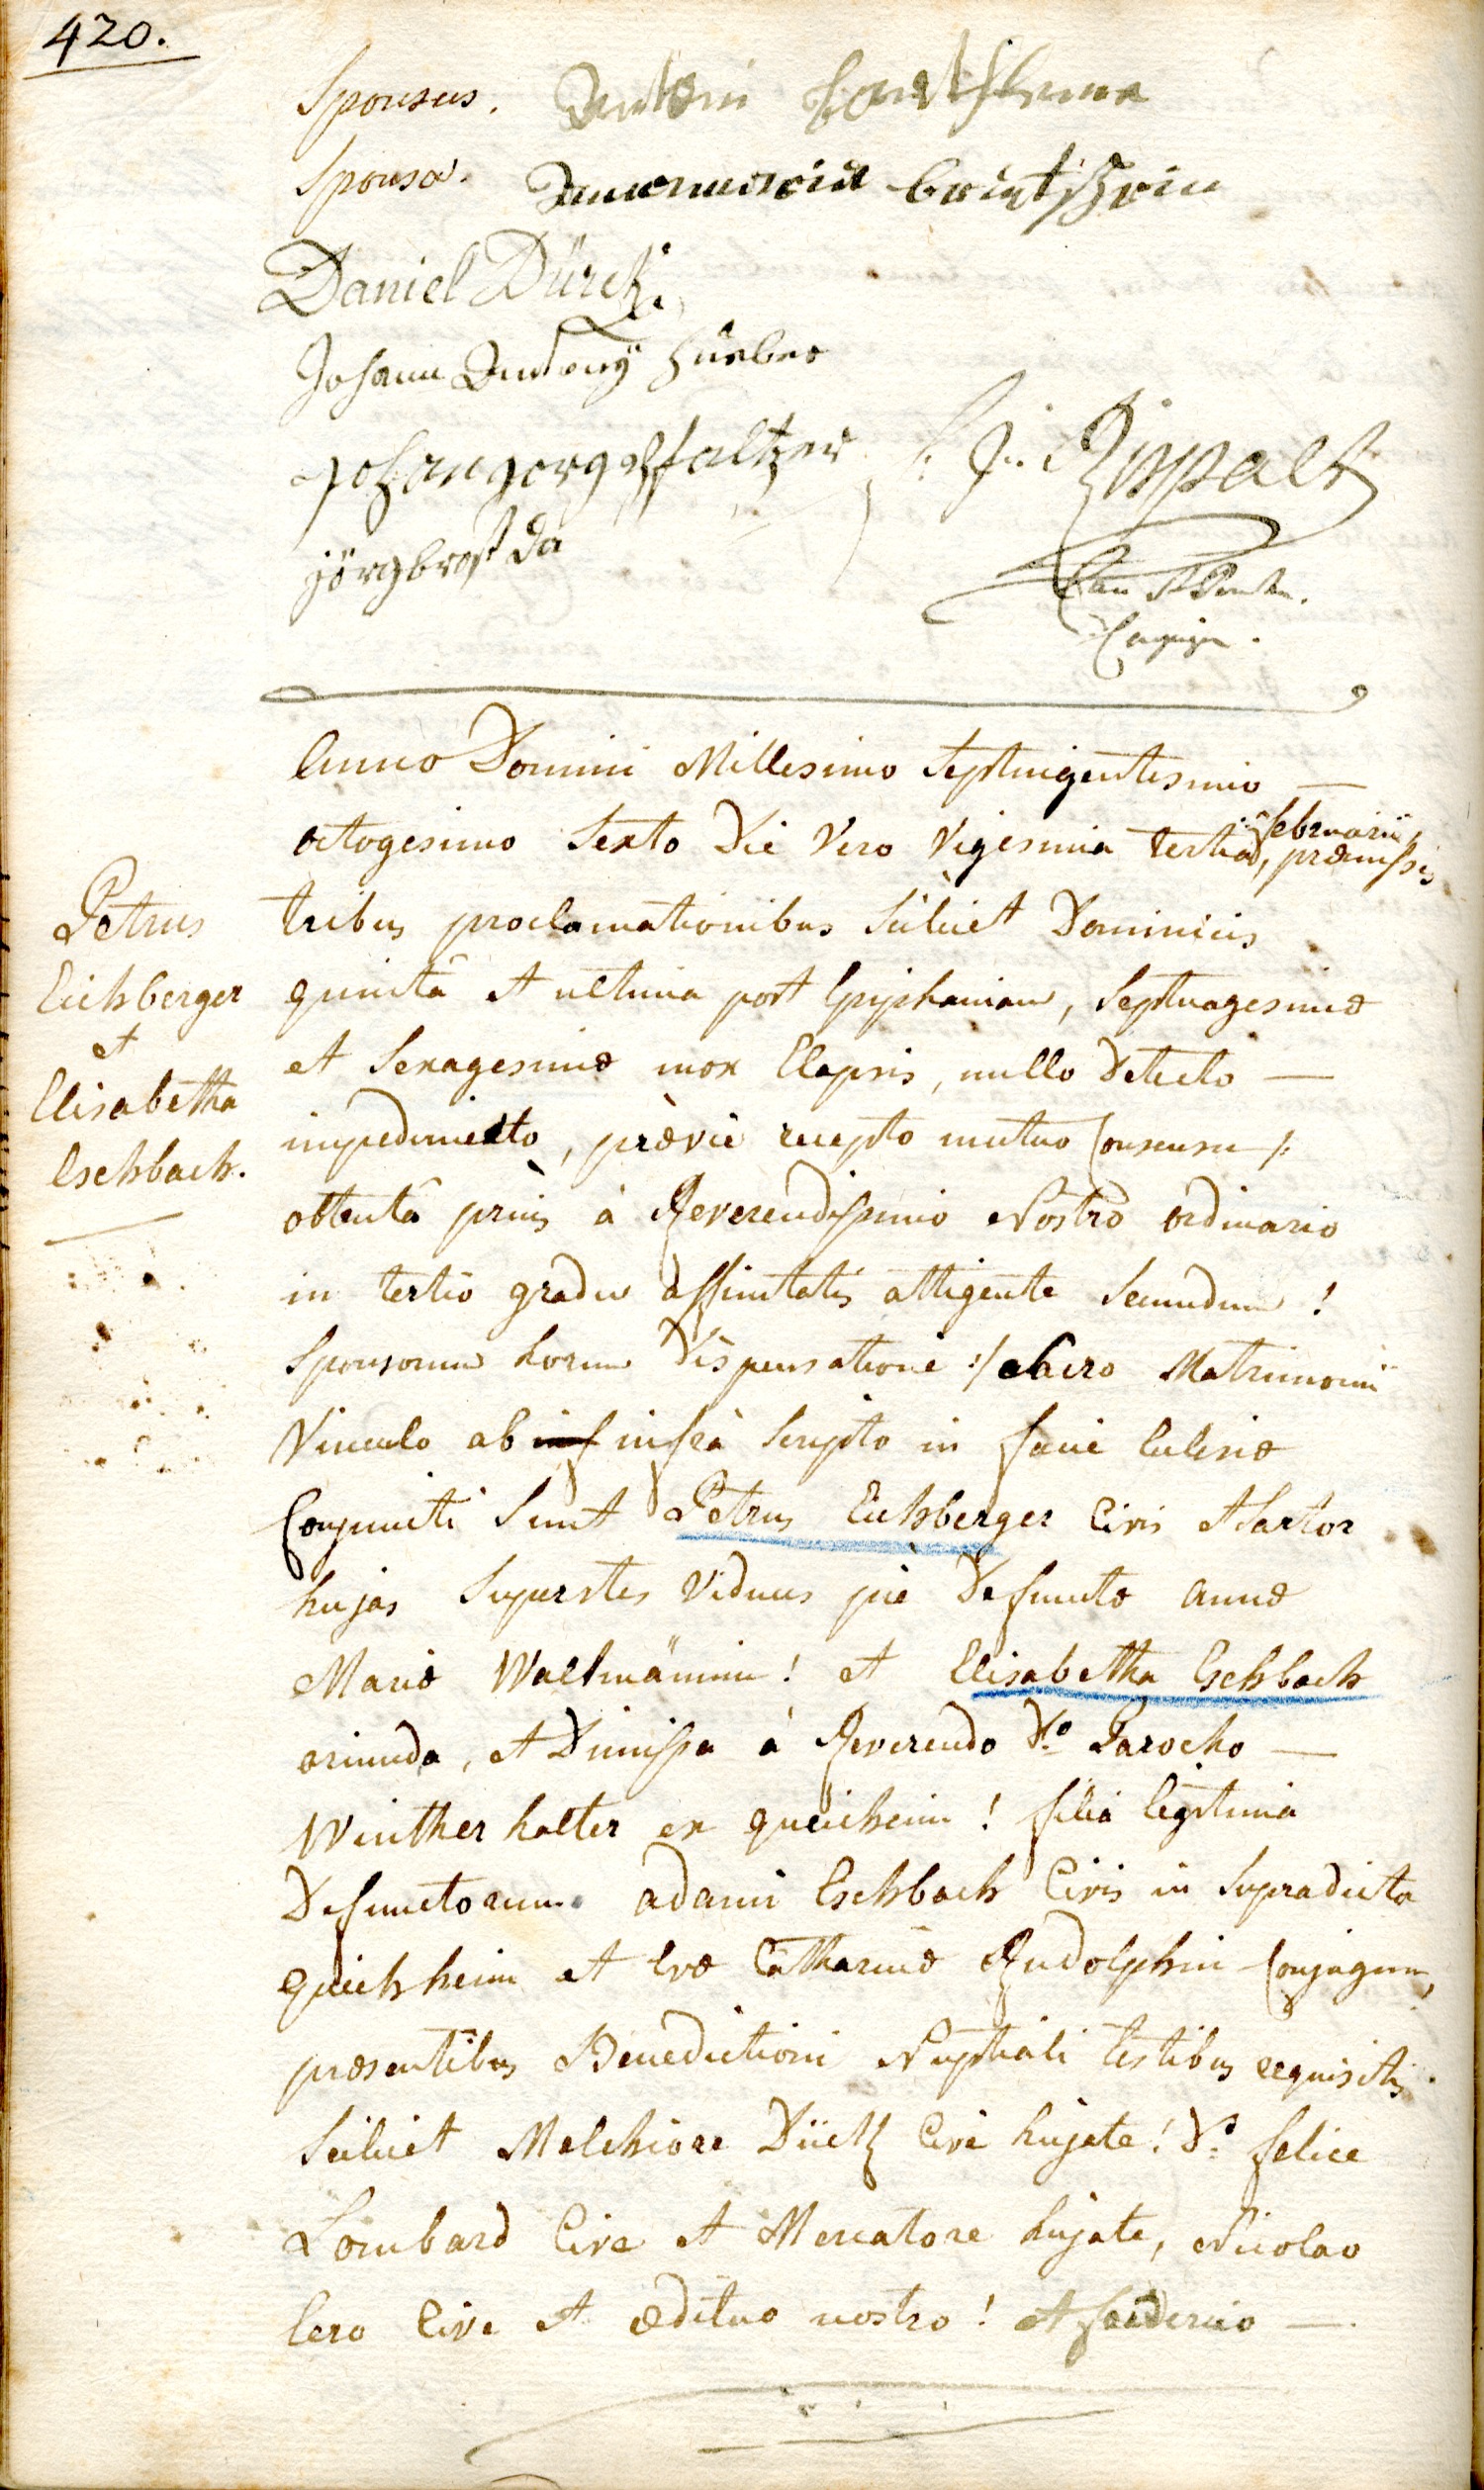 420.
Sponsus. Antoni
Sponsa.
Daniel Dürck.
Johann Anthony Hueber
Johan gorg Pfaltzer
jörg brost
Anno Domini Millesimo Septuigentesimo —
octogesimo Sexto Die Vero Vigesimia tertiâ februarii, præmissis
tribus proclamationibus Scilicet Dominicis
quintâ et ultima post Epiphaniam, Septuagesimæ
et Sexagesimæ mox Elapsis, nullo Detecto —
impedimento, prævie recepto mutuo Consensu /:
obtentâ priùs à Reverendissimo Nostro ordinario
in tertio gradu affinitatis attigente Secundum !
Sponsorum horum Dispensatione :/ Sacro Matrimonii
Vinculo ab inf infrà Scripto in facie Eclesiæ
Conjuncti Sunt Petrus Eichberger Civis et Sartor
hujas Superstes Viduus piè Defunctæ annæ
Mariæ Waltmännin ! et Elisabetha Eschbach
oriunda, et Dimissa à Reverendo Do Parocho —
Winther halter ex queicheim ! filia legitima
Defunctorum adami Eschbach Civis in Supradicta
queichheim et Evæ Catharinæ Rudolphin Conjugum,
præsentibus Benedictioni Nuptiali testibus requisitis
Scilicet Melchiore Dück Cive hujate ! Do felice
Lombard Cive et Mercatore hujate, Nicolao
Cero Cive et ædituo nostro ! et friderico —
Petrus
Eichberger
et
Elisabetha
Eschbach.